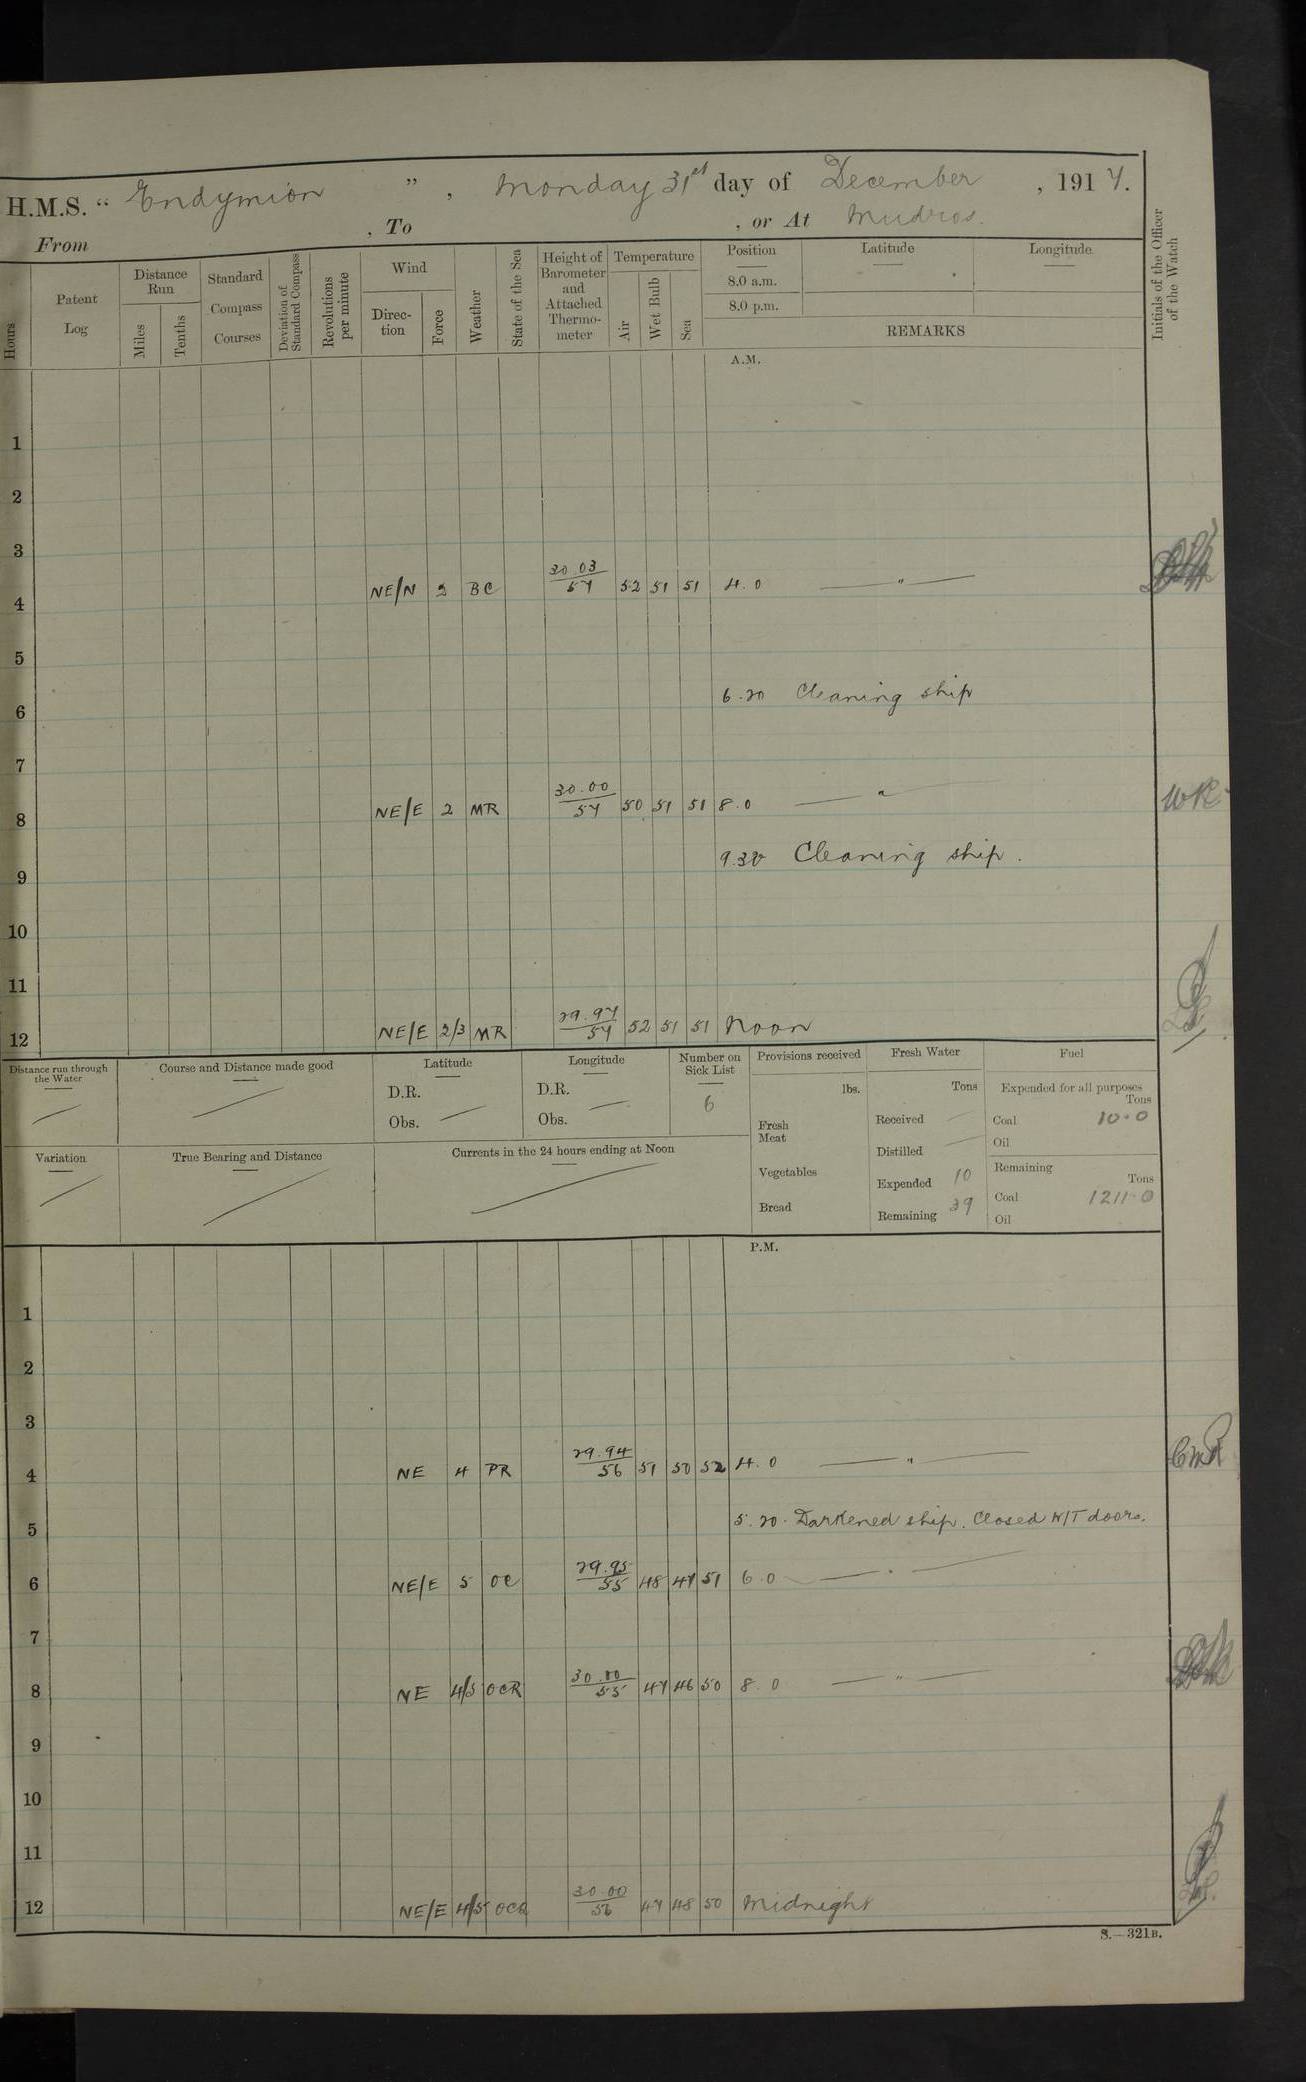 H.M.S. " Endymion " , Monday 31st day of December , 1917.
From , To , or At Mudros.
Hours
Patent Log
Distance Run
Miles
Tenths
Standard Compass Courses
Deviation of Standard Compass
Revolutions per minute
Wind
Direction
Force
Weather
State of the Sea
Height of Barometer and Attached Thermometer
Temperature
Air
Wet Bulb
Sea
Position
8.0 a.m.
8.0 p.m.
Latitude
Longitude
REMARKS
Initials of the Officer of the Watch
A.M.
1
2
3
4 NE/N 2 BC 30.03 57 52 51 51 4.0 "
5
6 6.20 Cleaning ship
7
8 NE/E 2 MR 30.00 57 50 51 51 8.0 " WR
9 9.30 Cleaning ship.
10
11
12 NE/E 2/3 MR 29.97 57 52 51 51 Noon
Distance run through the Water
Course and Distance made good
Latitude
D.R.
Obs.
Longitude
D.R.
Obs.
Number on Sick List
6
Provisions received
lbs.
Fresh Meat
Vegetables
Bread
Fresh Water
Tons
Received
Distilled
Expended 10
Remaining 39
Fuel
Expended for all purposes
Tons
Coal 10.0
Oil
Remaining
Tons
Coal 1211.0
Oil
Variation
True Bearing and Distance
Currents in the 24 hours ending at Noon
P.M.
1
2
3
4 NE 4 PR 29.94 56 51 50 52 4.0 " CMR
5 5.20. Darkened ship. Closed W/T doors.
6 NE/E 5 OC 29.95 55 48 47 51 6.0 "
7
8 NE 4/5 OCR 30.00 55 47 46 50 8.0 "
9
10
11
12 NE/E 4/5 OCQ 30.00 56 47 48 50 Midnight
S.—321B.